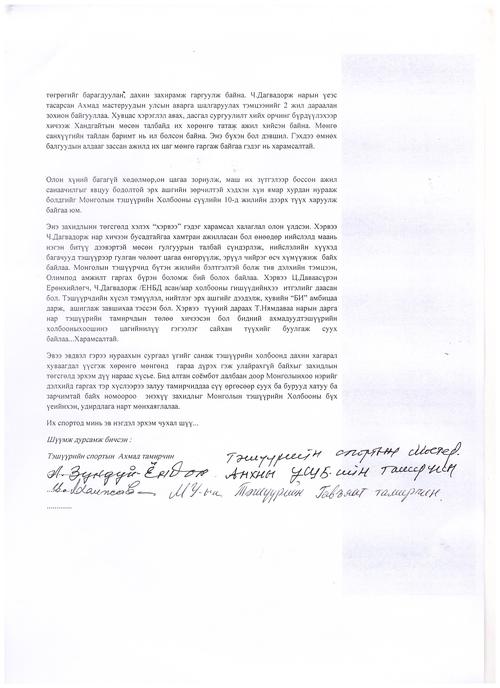 төгрөгийг барагдуулан, дахин захирамж гаргуулж байна. Ч.Дагвадорж нарын үеэс
тасарсан Ахмад мастеруудын улсын аварга шалгаруулах тэмцээнийг 2 жил дараалан
зохион байгууллаа. Хувцас хэрэглэл авах, дасгал сургуулилт хийх орчинг бүрдүүлэхээр
хичээж Хандгайтын мөсөн талбайд их хөрөнгө татаж ажил хийсэн байна. Мөнгө
санхүүгийн тайлан баримт нь ил болсон байна. Энэ бүхэн бол дэвшил. Гэхдээ өмнөх
балгуудын алдааг зассан ажилд их цаг мөнгө гаргаж байгаа гэдэг нь харамсалтай.
Олон хүний багагүй хөдөлмөр,он цагаа зориулж, маш их зүтгэлээр боссон ажил
санаачилгыг явцуу бодолтой эрх ашгийн зөрчилтэй хэдхэн хүн ямар хурдан нурааж
болдгийг Монголын тэшүүрийн Холбооны сүүлийн 10-д жилийн дээрх түүх харуулж
байгаа юм.
Энэ захидлынн төгсгөлд хэлэх “хэрвээ” гэдэг харамсал халаглал олон үлдсэн. Хэрвээ
Ч.Дагвадорж нар хичээн бусадтайгаа хамтран ажилласан бол өнөөдөр нийслэлд маань
нэгэн битүү дээвэртэй мөсөн гулгуурын талбай сүндэрлэж, нийслэлийн хүүхэд
багачууд тэшүүрээр гулган чөлөөт цагаа өнгөрүүлж, эрүүл чийрэг өсч хүмүүжиж байх
байлаа. Монголын тэшүүрчид бүтэн жилийн бэлтгэлтэй болж тив дэлхийн тэмцээн,
Олимпод амжилт гаргах бүрэн боломж бий болох байлаа. Хэрвээ Ц.Даваасүрэн
Ерөнхийлөгч, Ч.Дагвадорж /ЕНБД асан/нар холбооны гишүүдийнхээ итгэлийг даасан
бол. Тэшүүрчдийн хүсэл тэмүүлэл, нийтлэг эрх ашгийг дээдэлж, хувийн “БИ” амбицаа
дарж, ашиглаж завшихаа тэссэн бол. Хэрвээ түүний дараах Т.Нямдаваа нарын дарга
нар тэшүүрийн тамирчдын төлөө хичээсэн бол бидний ахмадуудтэшүүрийн
холбооныхоошинэ цагийнилүү гэгээлэг сайхан түүхийг буулгаж суух
байлаа...Харамсалтай.
Эвээ эвдвэл гэрээ нураахын сургаал үгийг санаж тэшүүрийн холбоонд дахин хагарал
хуваагдал үүсгэж хөрөнгө мөнгөнд гараа дүрэх гэж улайрахгүй байхыг захидлын
төгсгөлд эрхэм дүү нараас хүсье. Бид алтан соёмбот далбаан доор Монголынхоо нэрийг
дэлхийд гаргах тэр хүслээрээ залуу тамирчиддаа сүү өргөсөөр суух ба бурууд хатуу ба
зарчимтай байх номоороо энэхүү захидлыг Монголын тэшүүрийн Холбооны бүх
үеийнхэн, удирдлага нарт мөнхжүүллаа.
Их спортод минь эв нэгдэл эрхэм чухал шүү...
Шүүмж дурсамж бичсэн :
Тэшүүрийн спортын Ахмад тамирчин Тэшүүрийн спортын Мастер.
Л. Зундуй-Ёндон Анхны УШБ-ийн тамирчин
МУ-ын Тэшүүрийн Гавъяат тамирчин.
.............